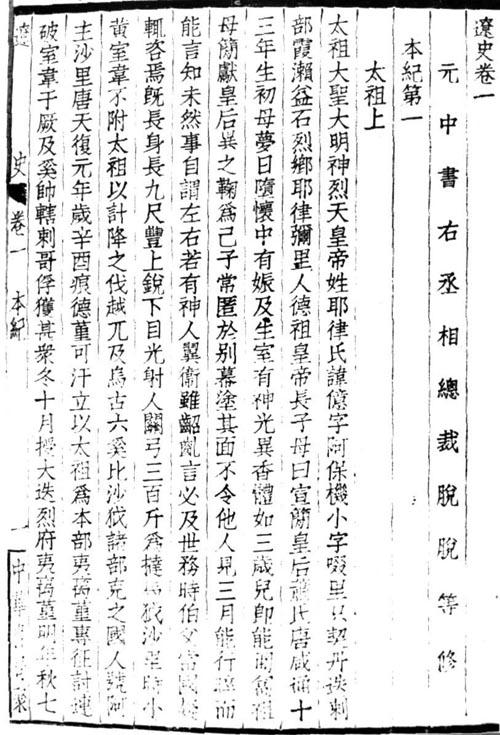 遼史卷一
元中書右丞相總裁脫脫等修
本紀第一
太祖上
太祖大聖大明神烈天皇帝姓耶律氏諱億字阿保機小字啜里只契丹迭剌
部霞瀨益石烈鄉耶律彌里人德祖皇帝長子母曰宣簡皇后蕭氏唐咸通十
三年生初母夢日墮懷中有娠及生室有神光異香體如三歲兒即能匍匐祖
母簡獻皇后異之鞠爲己子常匿於別幕塗其面不令他人見三月能行晬而
能言知未然事自謂左右若有神人翼衞雖齠齔言必及世務時伯父當國疑
輒咨焉既長身長九尺豐上銳下目光射人關弓三百斤爲撻馬狘沙里時小
黃室韋不附太祖以計降之伐越兀及烏古六奚比沙狘諸部克之國人號阿
主沙里唐天復元年歲辛酉痕德堇可汗立以太祖爲本部夷离堇專征討連
破室韋于厥及奚帥轄剌哥俘獲甚衆冬十月授大迭烈府夷离堇明年秋七
遼史 卷一 本紀 一 中華書局聚